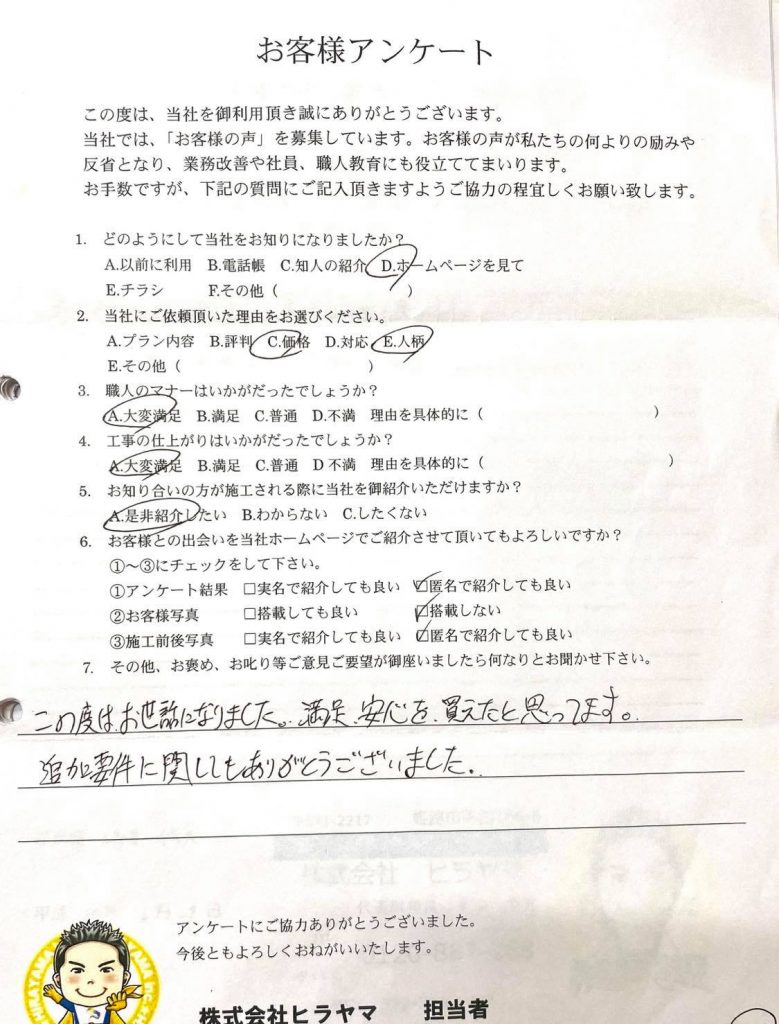 お客様アンケート
この度は、当社を御利用頂き誠にありがとうございます。
当社では、「お客様の声」を募集しています。お客様の声が私たちの何よりの励みや
反省となり、業務改善や社員、職人教育にも役立ててまいります。
お手数ですが、下記の質問にご記入頂きますようご協力の程宜しくお願い致します。
1. どのようにして当社をお知りになりましたか?
A.以前に利用 B.電話帳 C.知人の紹介 D.ホームページを見て
E.チラシ F.その他( )
2. 当社にご依頼頂いた理由をお選びください。
A.プラン内容 B.評判 C.価格 D.対応 E.人柄
E.その他( )
3. 職人のマナーはいかがだったでしょうか?
A.大変満足 B.満足 C.普通 D.不満 理由を具体的に( )
4. 工事の仕上がりはいかがだったでしょうか?
A.大変満足 B.満足 C.普通 D 不満 理由を具体的に( )
5. お知り合いの方が施工される際に当社を御紹介いただけますか?
A.是非紹介したい B.わからない C.したくない
6. お客様との出会いを当社ホームページでご紹介させて頂いてもよろしいですか?
①〜③にチェックをして下さい。
①アンケート結果 □実名で紹介しても良い ☑匿名で紹介しても良い
②お客様写真 □搭載しても良い ☑搭載しない
③施工前後写真 □実名で紹介しても良い ☑匿名で紹介しても良い
7. その他、お褒め、お叱り等ご意見ご要望が御座いましたら何なりとお聞かせ下さい。
この度は、お世話になりました。満足、安心を、買えたと思ってます。
追加要件に関してもありがとうございました。
アンケートにご協力ありがとうございました。
今後ともよろしくおねがいいたします。
株式会社ヒラヤマ 担当者